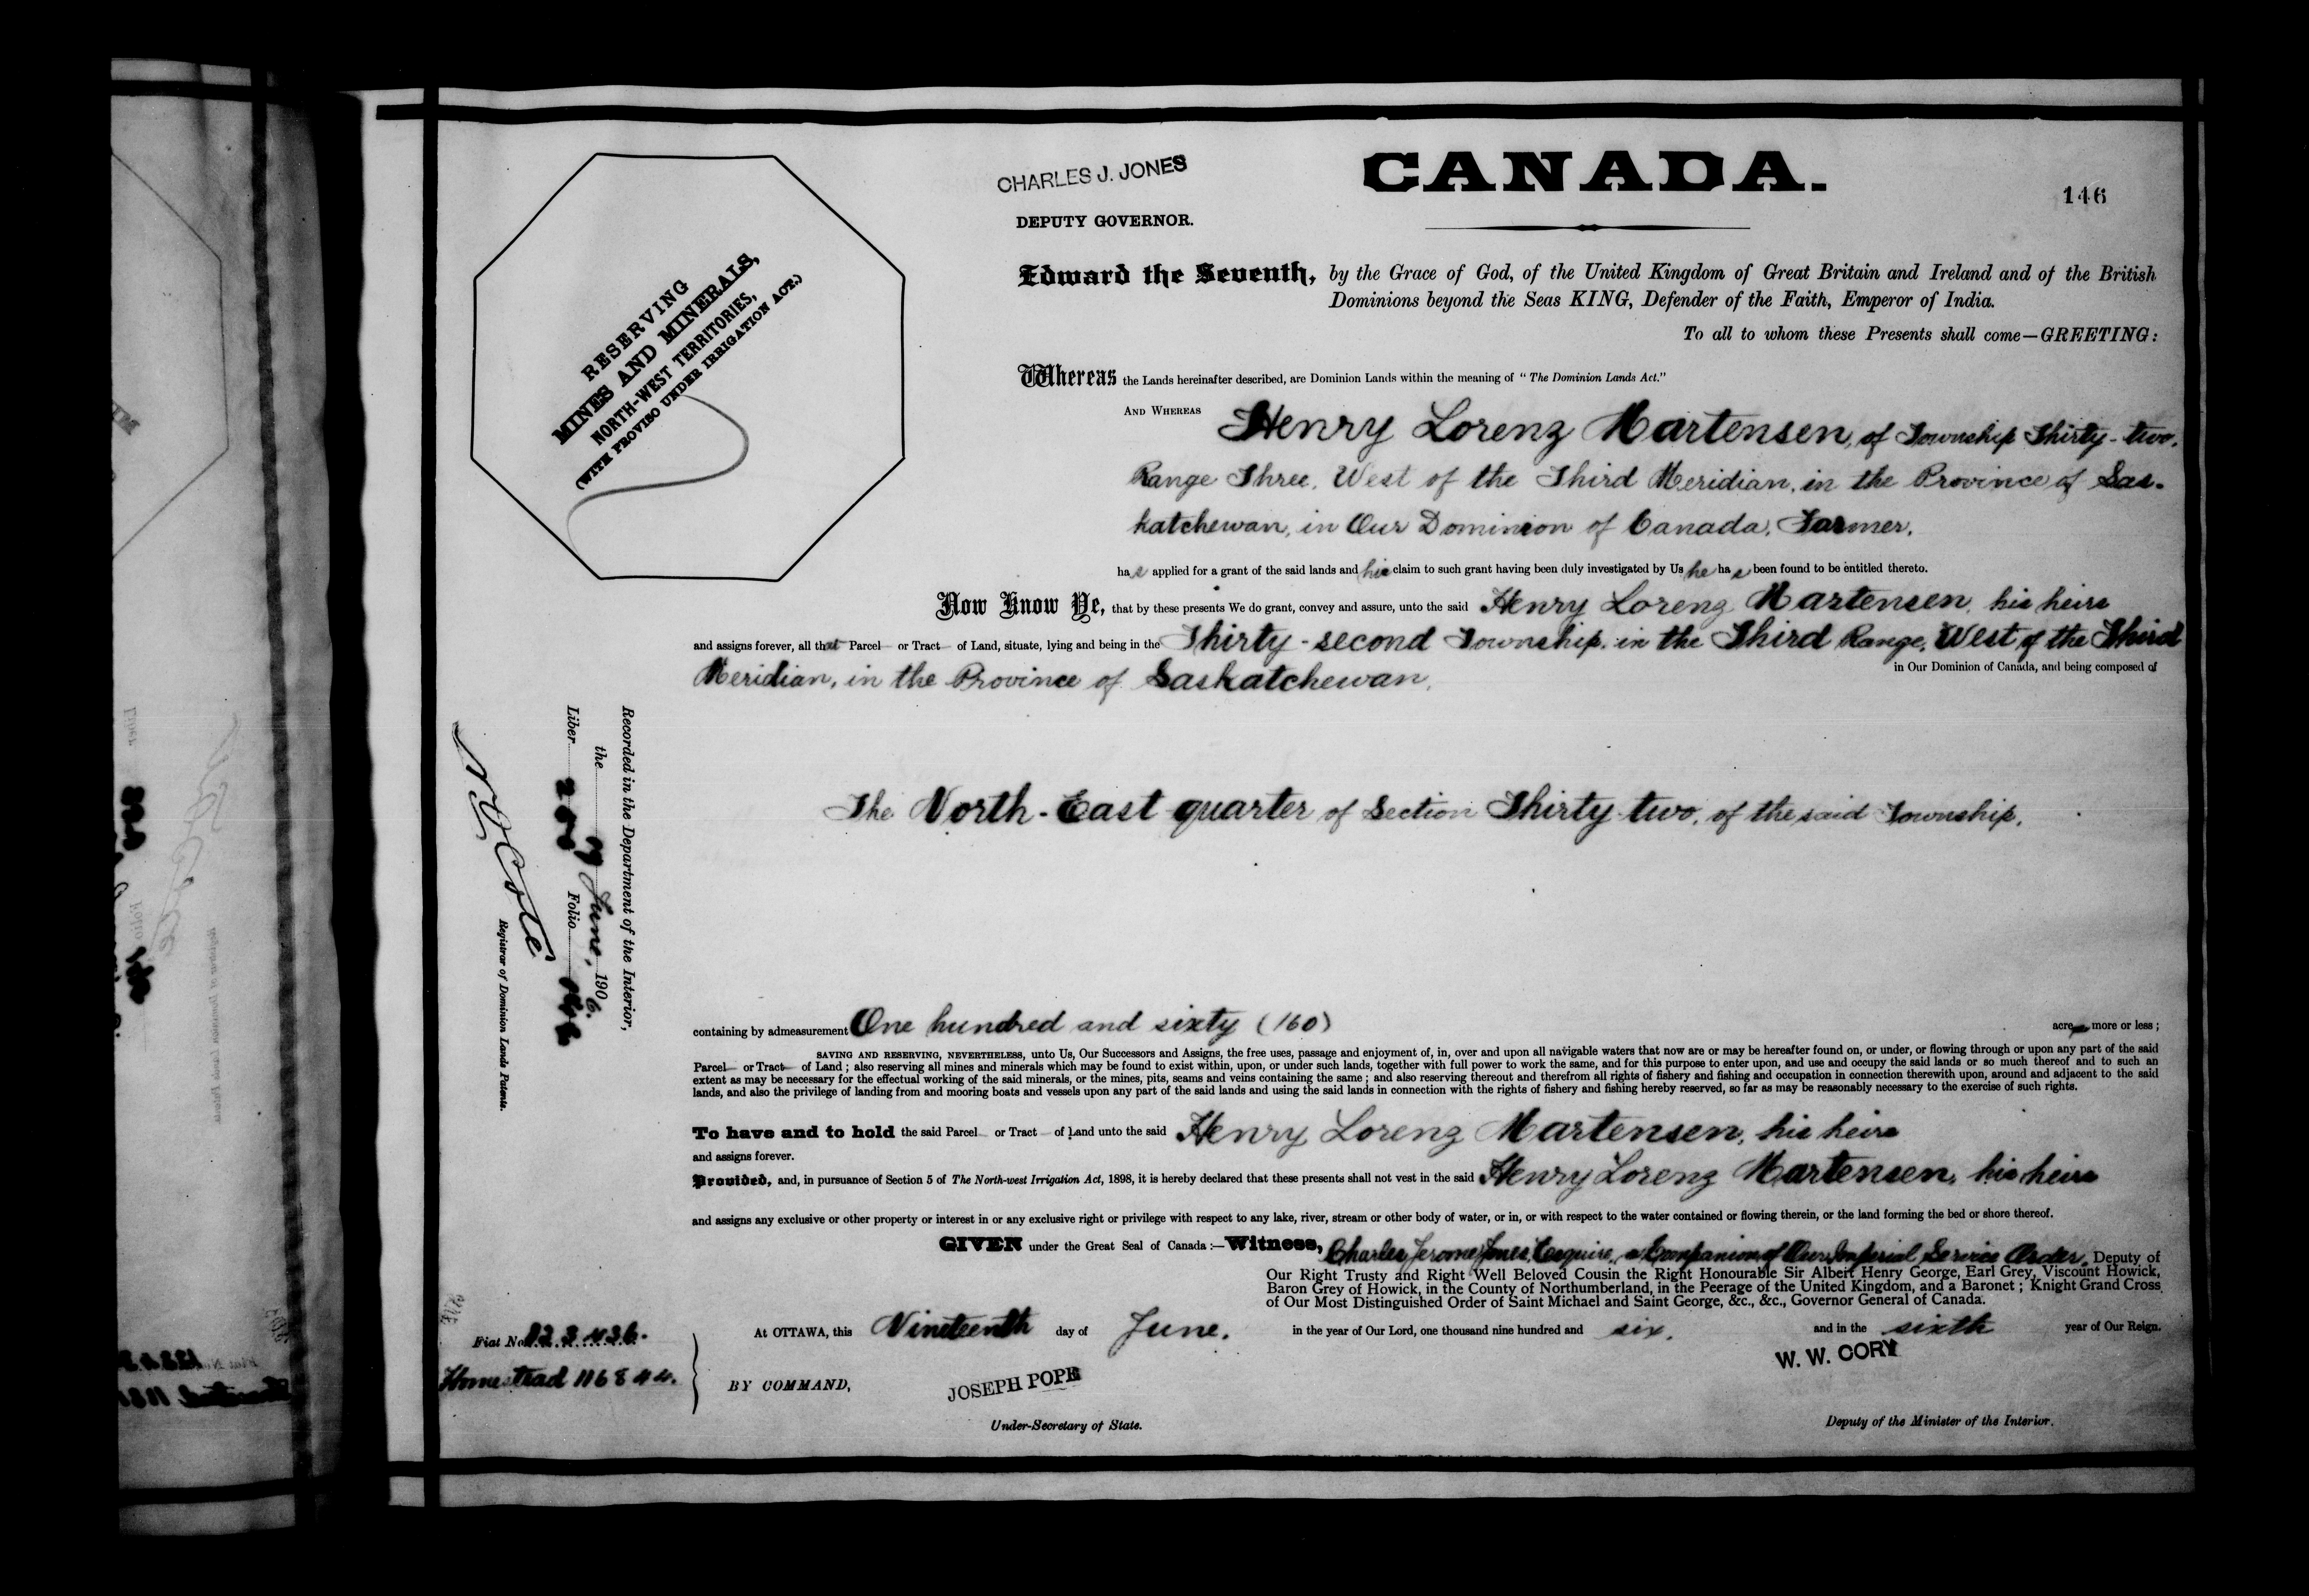 CHARLES J. JONES
DEPUTY GOVERNOR.
CANADA.
146
RESERVING
MINES AND MINERALS,
NORTH-WEST TERRITORIES,
(WITH PROVISO UNDER IRRIGATION ACT.)
Edward the Seventh, by the Grace of God, of the United Kingdom of Great Britain and Ireland and of the British
Dominions beyond the Seas KING, Defender of the Faith, Emperor of India.
To all to whom these Presents shall come—GREETING:
Whereas the Lands hereinafter described, are Dominion Lands within the meaning of "The Dominion Lands Act."
AND WHEREAS Henry Lorenz Martensen, of Township Thirty-two,
Range Three, West of the Third Meridian, in the Province of Sas-
katchewan, in Our Dominion of Canada, Farmer,
has applied for a grant of the said lands and his claim to such grant having been duly investigated by Us he has been found to be entitled thereto.
Now Know Ye, that by these presents We do grant, convey and assure, unto the said Henry Lorenz Martensen, his heirs
and assigns forever, all that Parcel or Tract of Land, situate, lying and being in the Thirty-second Township, in the Third Range, West of the Third
Meridian, in the Province of Saskatchewan, in Our Dominion of Canada, and being composed of
The North-East quarter of Section Thirty-two, of the said Township,
Recorded in the Department of the Interior,
the 19 June, 1906.
Liber 200 Folio 146
N O Coté
Registrar of Dominion Lands Patents.
containing by admeasurement One hundred and sixty (160) acres more or less;
SAVING AND RESERVING, NEVERTHELESS, unto Us, Our Successors and Assigns, the free uses, passage and enjoyment of, in, over and upon all navigable waters that now are or may be hereafter found on, or under, or flowing through or upon any part of the said
Parcel or Tract of Land; also reserving all mines and minerals which may be found to exist within, upon, or under such lands, together with full power to work the same, and for this purpose to enter upon, and use and occupy the said lands or so much thereof and to such an
extent as may be necessary for the effectual working of the said minerals, or the mines, pits, seams and veins containing the same; and also reserving thereout and therefrom all rights of fishery and fishing and occupation in connection therewith upon, around and adjacent to the said
lands, and also the privilege of landing from and mooring boats and vessels upon any part of the said lands and using the said lands in connection with the rights of fishery and fishing hereby reserved, so far as may be reasonably necessary to the exercise of such rights.
To have and to hold the said Parcel or Tract of Land unto the said Henry Lorenz Martensen, his heirs
and assigns forever.
Provided, and, in pursuance of Section 5 of The North-west Irrigation Act, 1898, it is hereby declared that these presents shall not vest in the said Henry Lorenz Martensen, his heirs
and assigns any exclusive or other property or interest in or any exclusive right or privilege with respect to any lake, river, stream or other body of water, or in, or with respect to the water contained or flowing therein, or the land forming the bed or shore thereof.
GIVEN under the Great Seal of Canada:—Witness, Charles Jerome Jones, Esquire, a Companion of Our Imperial Service Order, Deputy of
Our Right Trusty and Right Well Beloved Cousin the Right Honourable Sir Albert Henry George, Earl Grey, Viscount Howick,
Baron Grey of Howick, in the County of Northumberland, in the Peerage of the United Kingdom, and a Baronet; Knight Grand Cross
of Our Most Distinguished Order of Saint Michael and Saint George, &c., &c., Governor General of Canada.
At OTTAWA, this Nineteenth day of June, in the year of Our Lord, one thousand nine hundred and six, and in the sixth year of Our Reign.
Fiat No.
Homestead 116844.
BY COMMAND,
JOSEPH POPE
Under-Secretary of State.
W. W. CORY
Deputy of the Minister of the Interior.